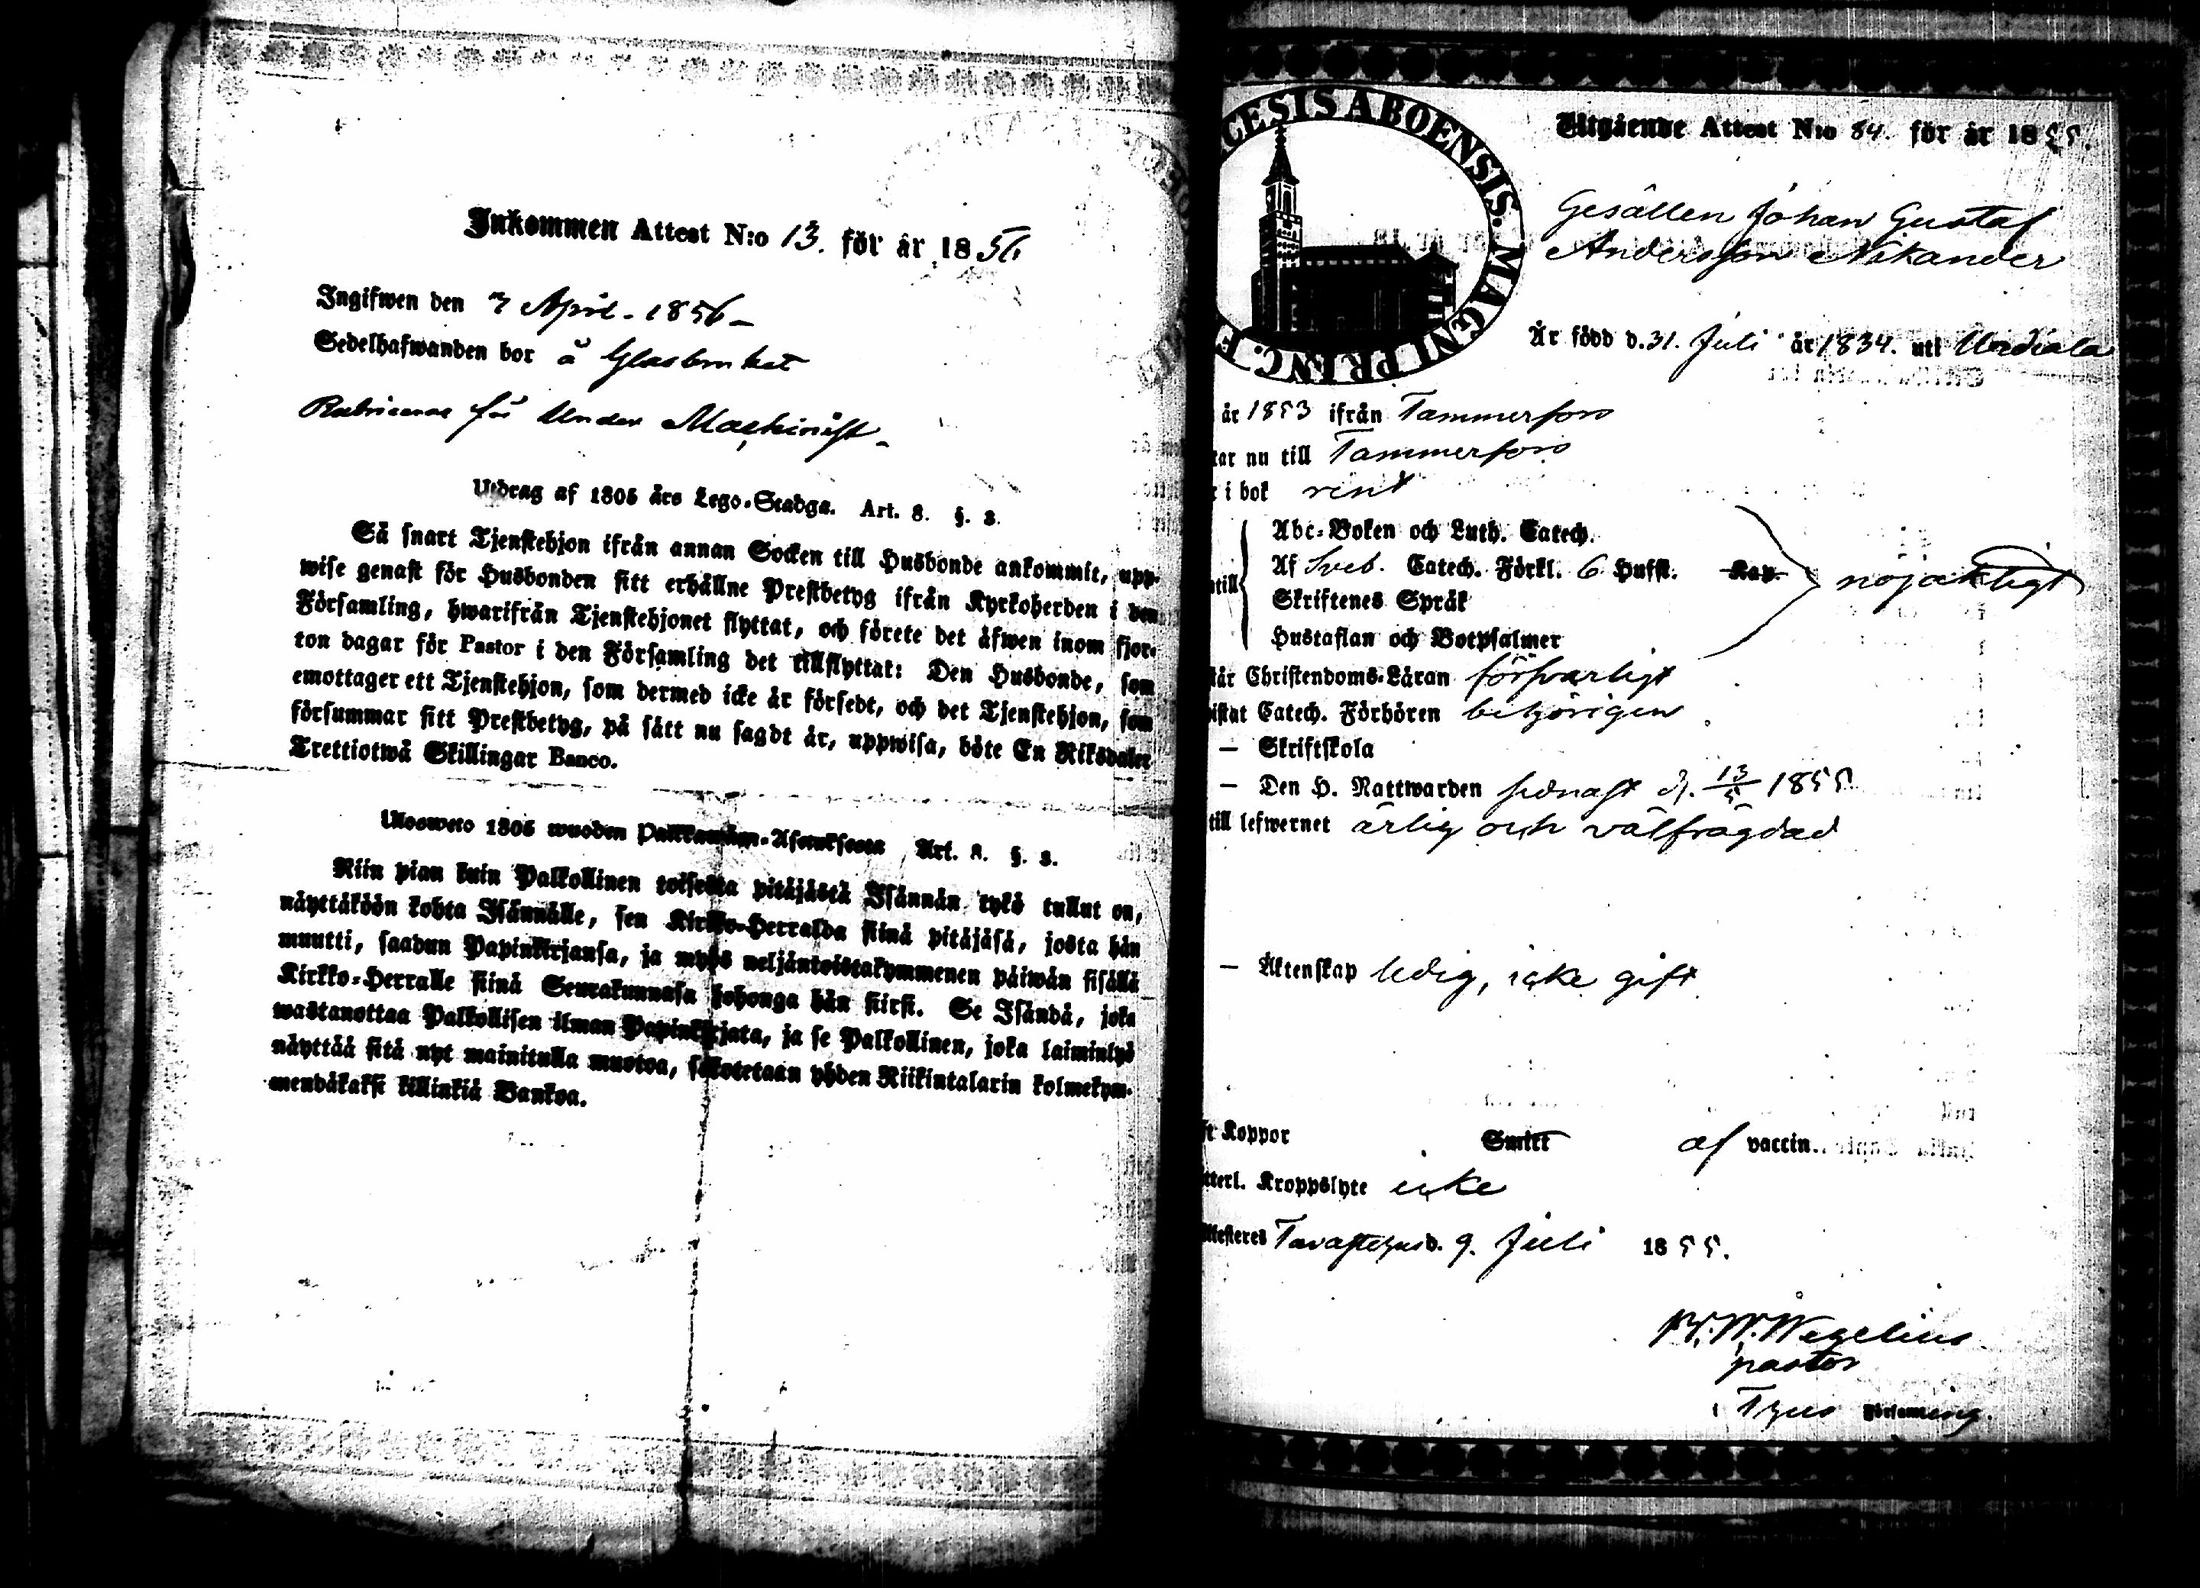 Inkommen Attest N:o 13. för år 1856
Ingifwen den 3 April - 1856 -
Sedelhafwanden bor å Glasbruket
för Under Machinist -
Utdrag af 1805 års Lego-Stadga. Art. 8. §. 3.
Så snart Tjenstehjon ifrån annan Socken till Husbonde ankommit, upp-
wise genast för Husbonden sitt erhållne Prestbetyg ifrån Kyrkoherden i den
Församling, hwarifrån Tjenstehjonet flyttat, och förete det äfwen inom fjor-
ton dagar för Pastor i den Församling det tillflyttat: Den Husbonde, som
emottager ett Tjenstehjon, som dermed icke är försedt, och det Tjenstehjon, som
försummar sitt Prestbetyg, på sätt nu sagdt är, uppwisa, böte En Riksdaler
Trettiotwå Skillingar Banco.
Ulosweto 1805 wuoden Palkkawäen-Asetuksesta Art. 8. §. 3.
Niin pian kuin Palkollinen toisesta pitäjästä Isännän tykö tullut on,
näyttäköön kohta Isännälle, sen Kirkko-Herralda siinä pitäjäsä, josta hän
muutti, saadun Papinkirjansa, ja myös neljäntoistakymmenen päiwän sisällä
Kirkko-Herralle siinä Seurakunnasa johonga hän siirsi. Se Isändä, joka
wastanottaa Palkollisen ilman Papinkirjata, ja se Palkollinen, joka laiminlyö
näyttää sitä nyt mainitulla muotoa, sakotetaan yhden Riikintalarin kolmekym-
mendäkaksi killinkiä Bankoa.
CESIS ABOENSIS. MAGNI PRINC. F
Utgående Attest N:o 84. för år 1855.
Gesällen Johan Gustaf
Andersson Nikander
Är född d. 31. Juli år 1834. uti Urdiala
år 1853 ifrån Tammerfors
tar nu till Tammerfors
r i bok rent
Abc-Boken och Luth. Catech.
Af Sveb. Catech. Förkl. 6 Hufst. Kap. nöjaktigt
ntill Skriftenes Språk
Hustaflan och Botpsalmer
står Christendoms-Läran försvarligt
vistat Catech. Förhören behörigen
— Skriftskola
— Den H. Nattwarden senast d. 13/5 1855
till lefwernet ärlig och välfrägdad
— Äktenskap ledig, icke gift
ft Koppor Smitt af vaccin.
tterl. Kroppslyte icke
Attesteres Tavastehus d. 9. Juli 1855.
W. Wegelius
pastor
i Församling.